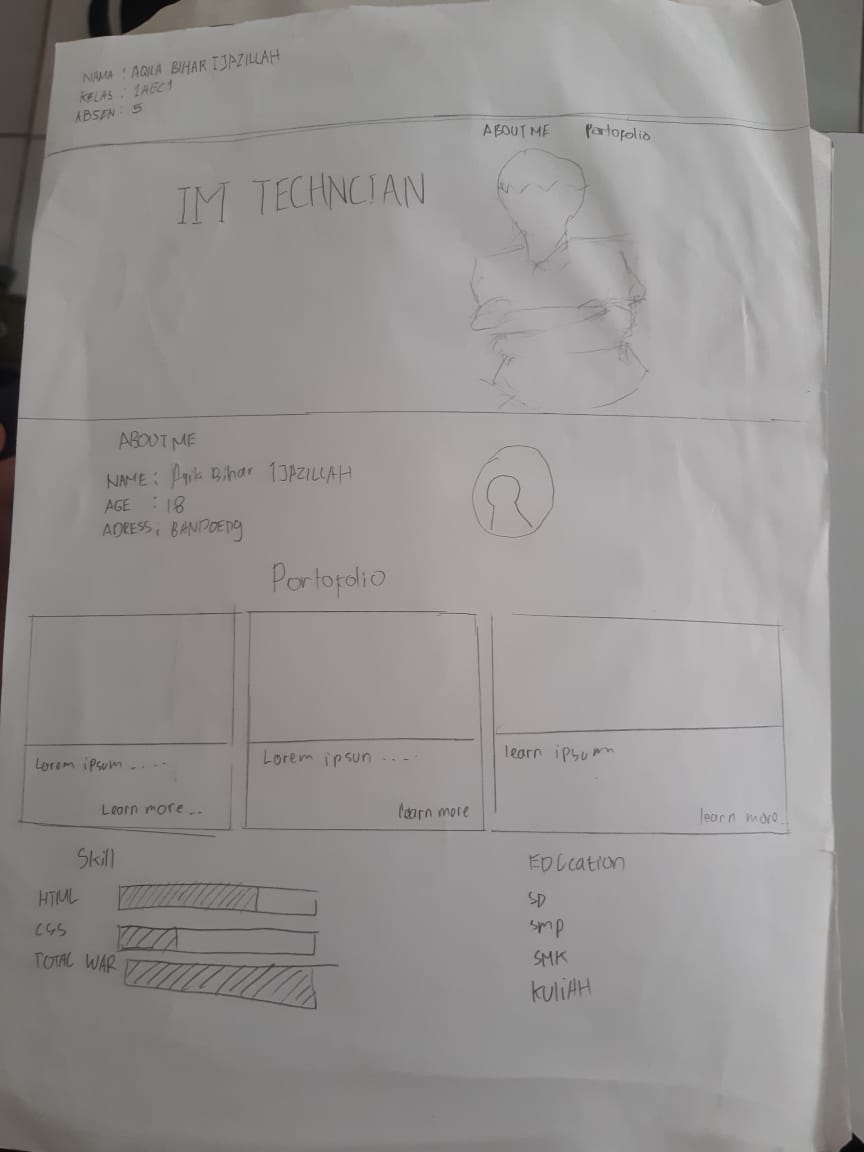 NAMA : AQILA BIHAR IJAZILLAH
KELAS : 1AEC1
ABSEN : 5
ABOUT ME Portofolio
IM TECHNCIAN
ABOUT ME
NAME : Aqila Bihar IJAZILLAH
AGE : 18
ADRESS : BANDOEng
Portofolio
Lorem ipsum .... Lorem ipsun .... learn ipsum
Learn more .. learn more learn more
Skill EDUcation
HTML SD
CSS smp
TOTAL WAR SMK
KuliAH